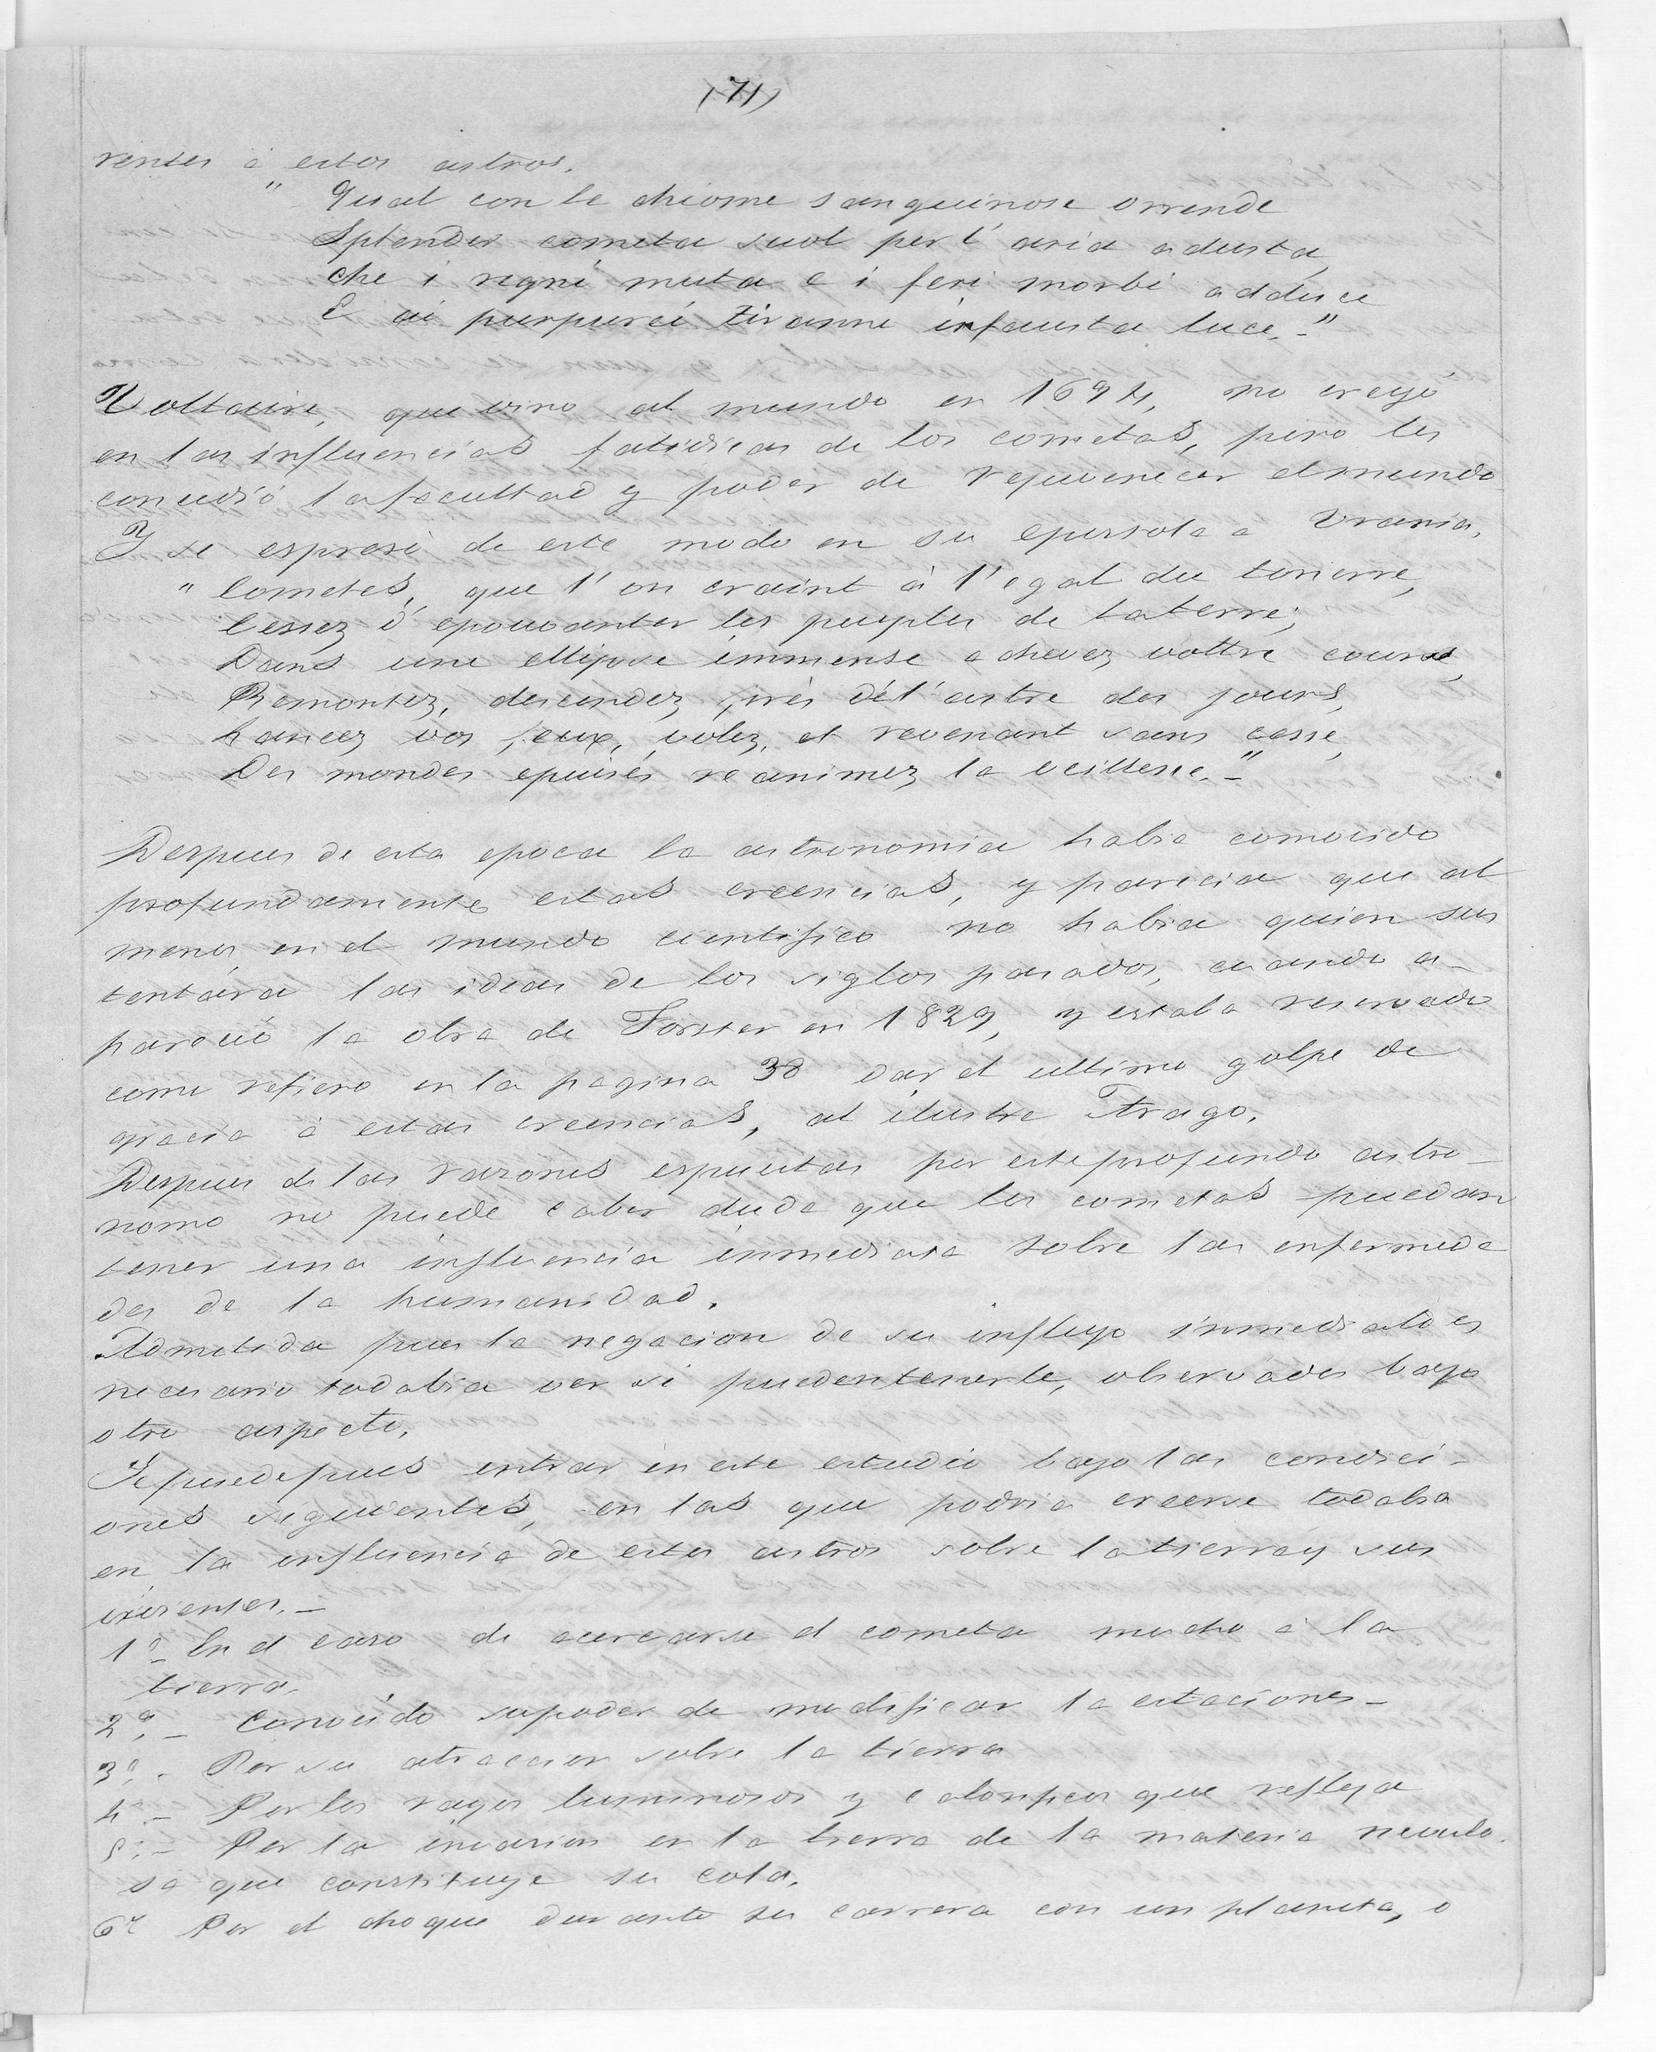 (71)
rentes á estos astros.
" Qual con le chiome sanguinose orrende
Splender cometa suol per l'aria adusta,
che i regni muta e i feri morbi adduce
E ai purpurei tiranni infausta luce.-"
Voltaire, que vino al mundo en 1694, no creyó
en las influencias fatidicas de los cometas, pero les
concedió la facultad y poder de rejuvenecer el mundo
Y se espresó de este modo en su epistola a Urania.
" Cometes, que l'on craint à l'egal du tonerre,
Cessez d'epouvanter les peuples de la terre;
Dans une ellipse immense achevez vottre course,
Remontez, descendez près de l'astre des jours,
Lancez vos feux, volez, et revenant sans cesse,
Des mondes epuisés reanimez la veillesse.-"
Despues de esta epoca la astronomia habia comovido
profundamente estas creencias, y parecia que al
menos en el mundo cientifico no habia quien sus
tentára las ideas de los siglos pasados, cuando a-
pareció la obra de Forster en 1829, y estaba reservado
como refiero en la pagina 38 dar el ultimo golpe de
gracia á estas creencias, al ilustre Arago.
Despues de las razones espuestas por este profundo astro-
nomo no puede caber duda que los cometas puedan
tener una influencia inmediata sobre las enfermeda
des de la humanidad.
Admetida pues la negacion de su influjo inmediato es
necesario todabia ver si pueden tenerle, observados bajo
otro aspecto.
Se puede pues entrar en este estudio bajo las condici-
ones siguientes, en las que podria creerse todabia
en la influencia de estos astros sobre la tierra y sus
existentes.-
1º- En el caso de acercarse el cometa mucho á la
tierra.
2º.- Conocido su poder de modificar la estaciones-
3º.- Por su atraccion sobre la tierra
4.- Por los rayos luminosos y calorificos que refleja
5:- Por la invasion en la tierra de la materia nevulo-
sa que constituye su cola.
6º Por el choque durante su carrera con un planeta, o